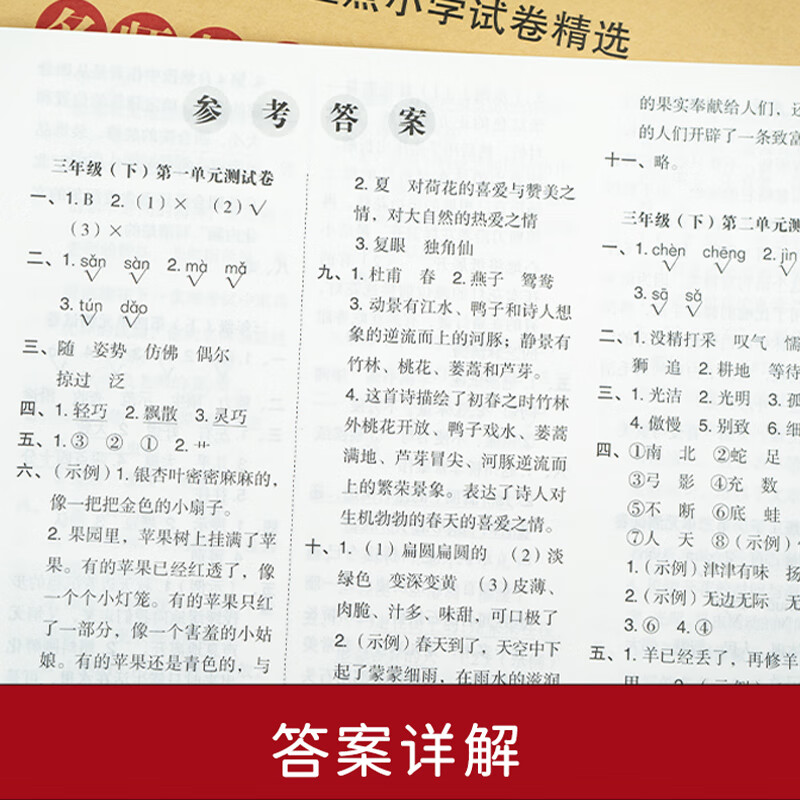 点小学试卷精选
名师
参考答案
三年级（下）第一单元测试卷
一、1.B 2.（1）× （2）√
（3）×
二、1. sǎn sàn 2. mà mǎ
3. tún dǎo
三、随 姿势 仿佛 偶尔
掠过 泛
四、1. 轻巧 2. 飘散 3. 灵巧
五、1.③ ② ① 2.
六、（示例）1. 银杏叶密密麻麻的，
像一把把金色的小扇子。
2. 果园里，苹果树上挂满了苹
果。有的苹果已经红透了，像
一个个小灯笼。有的苹果只红
了一部分，像一个害羞的小姑
娘。有的苹果还是青色的，与
2. 夏 对荷花的喜爱与赞美之
情，对大自然的热爱之情
3. 复眼 独角仙
九、1. 杜甫 春 2. 燕子 鸳鸯
3. 动景有江水、鸭子和诗人想
象的逆流而上的河豚；静景有
竹林、桃花、蒌蒿和芦芽。
4. 这首诗描绘了初春之时竹林
外桃花开放、鸭子戏水、蒌蒿
满地、芦芽冒尖、河豚逆流而
上的繁荣景象。表达了诗人对
生机勃勃的春天的喜爱之情。
十、1.（1）扁圆扁圆的 （2）淡
绿色 变深变黄 （3）皮薄、
肉脆、汁多、味甜，可口极了
2.（示例）春天到了，天空中下
起了蒙蒙细雨，在雨水的滋润
的果实奉献给人们，还
的人们开辟了一条致富
十一、略。
三年级（下）第二单元测
一、1. chèn chēng 2. jìn
3. sā sǎ
二、1. 没精打采 叹气 懦
狮 追 2. 耕地 等待
三、1. 光洁 2. 光明 3. 孤
4. 傲慢 5. 别致 6. 细
四、①南 北 ②蛇 足
③弓 影 ④充 数
⑤不 断 ⑥底 蛙
⑦人 天 ⑧（示例）
1.（示例）津津有味 扬
2.（示例）无边无际 无
3.⑥ 4.④
五、1. 羊已经丢了，再修羊
用 2.（示例）
答案详解